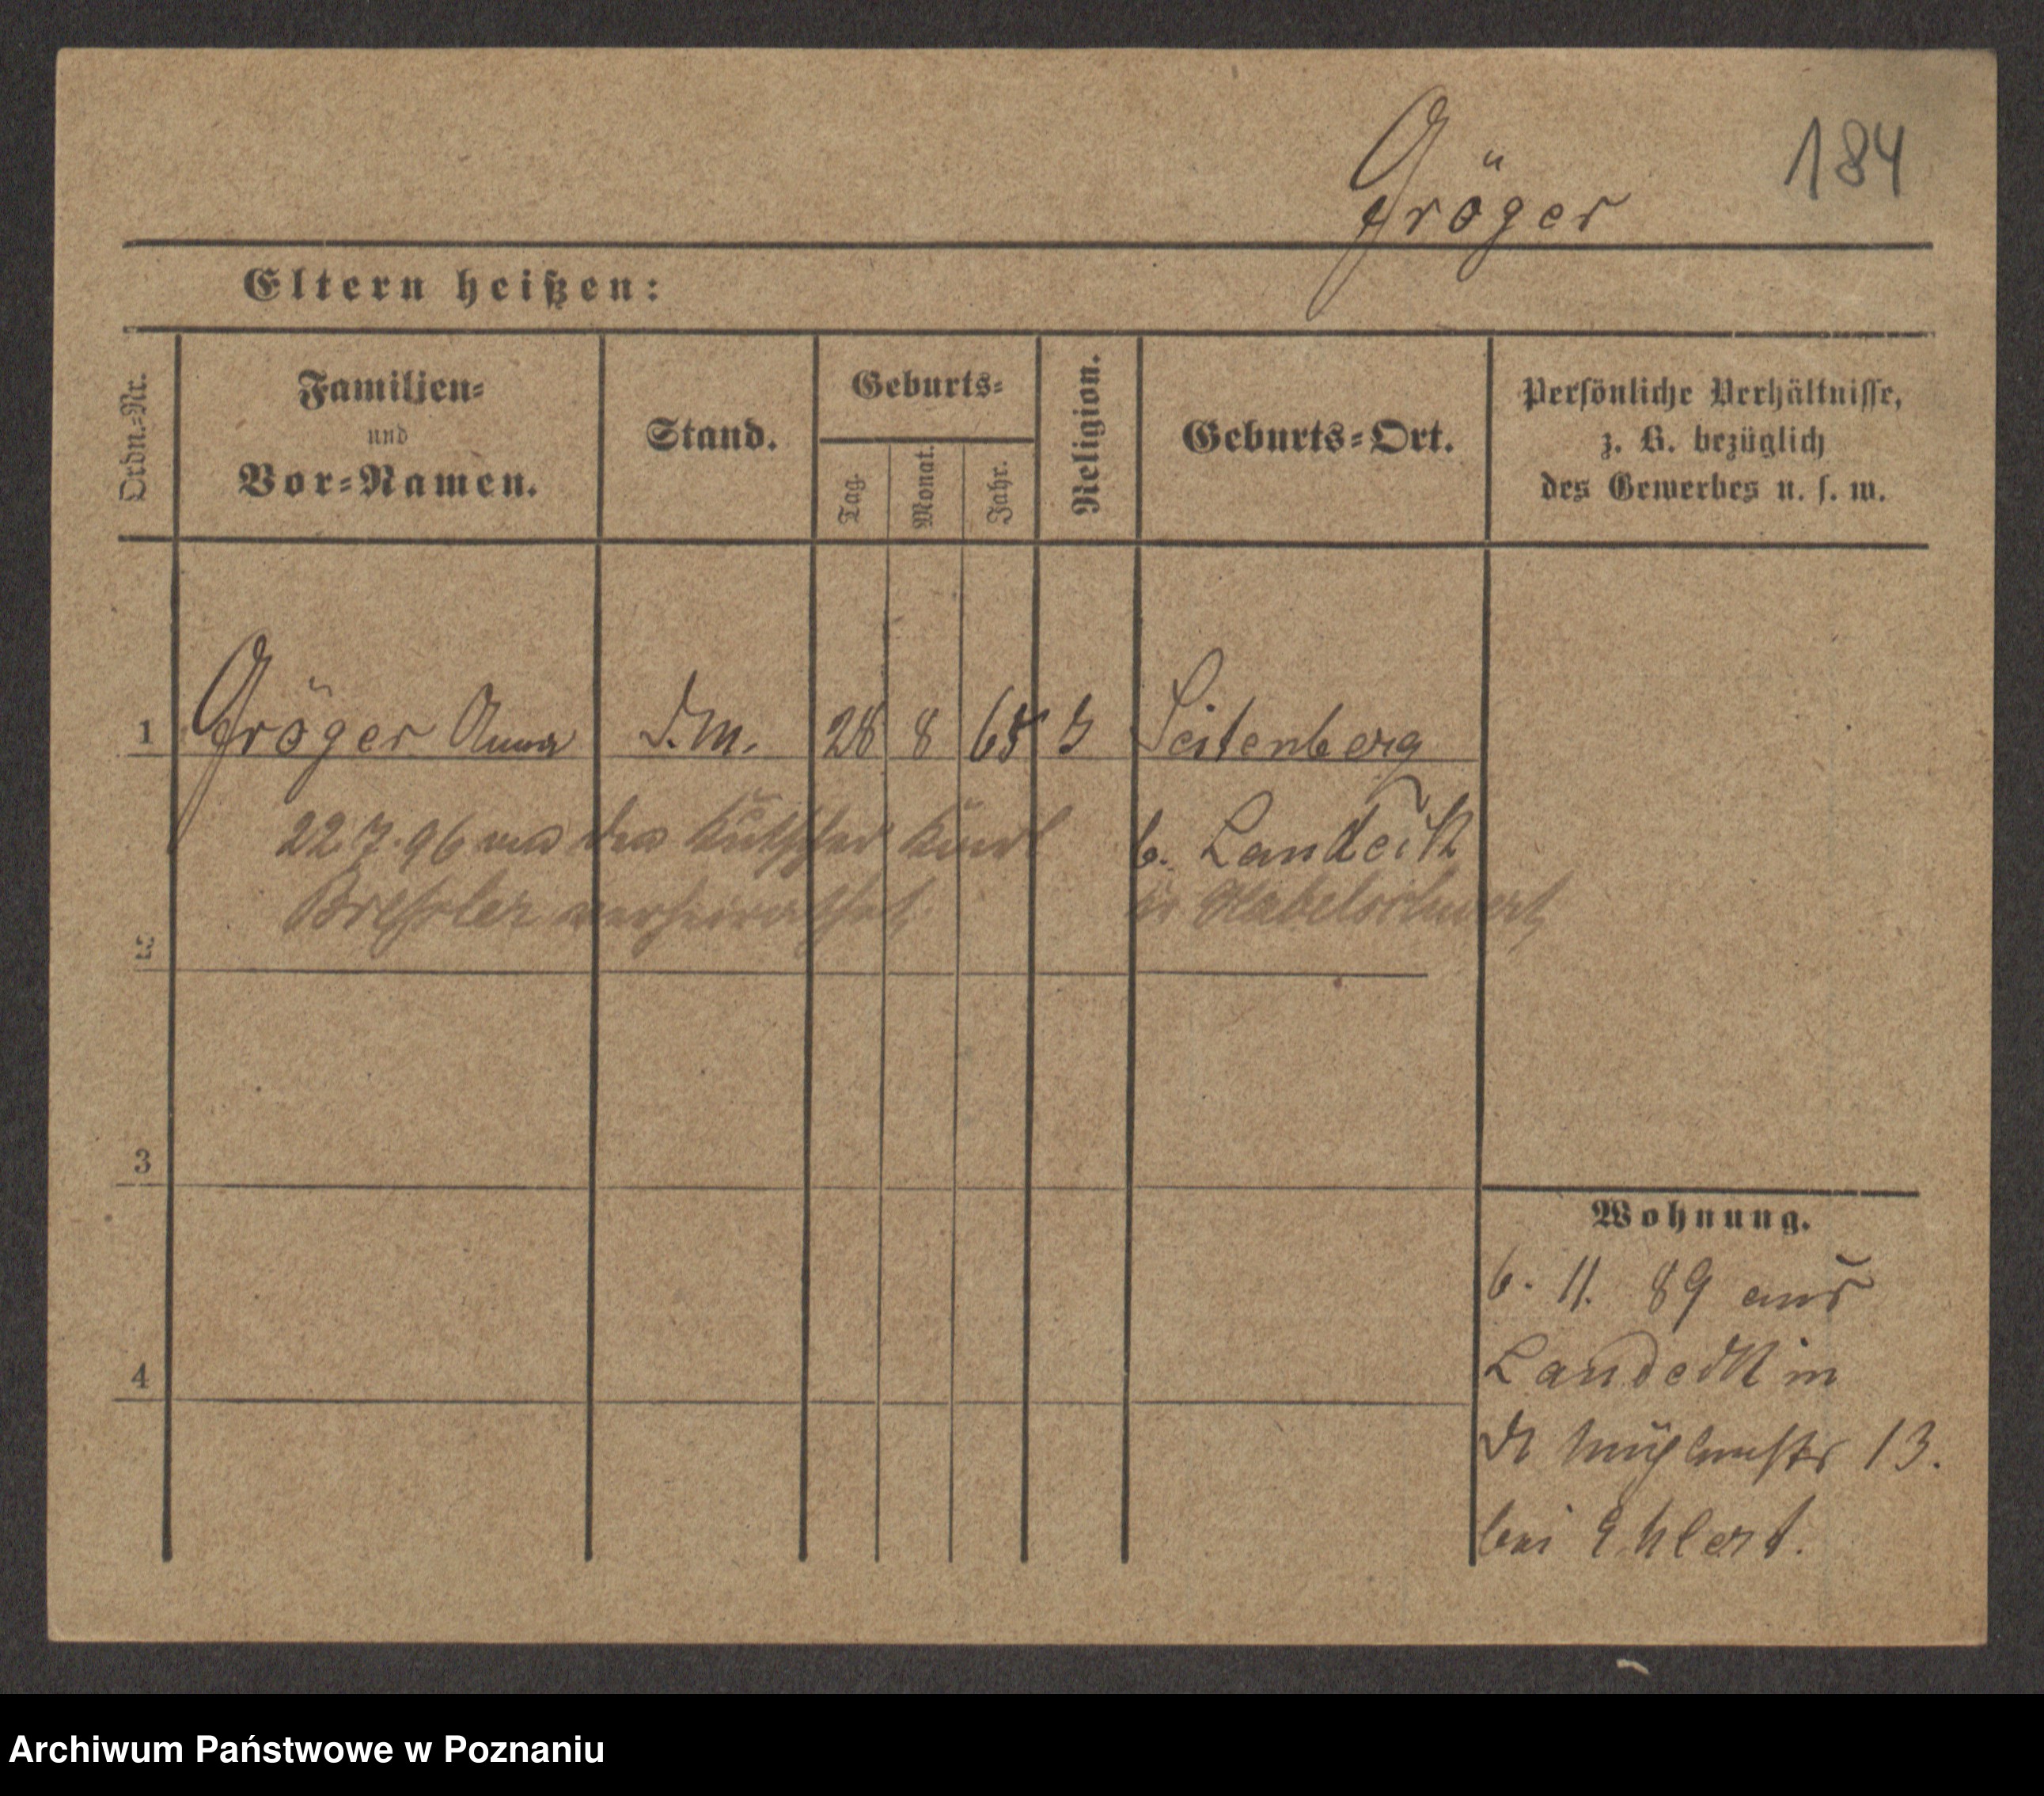 184
Gröger
Eltern heißen:
Ordn.-Nr.
Familien-
und
Vor-Namen.
Stand.
Geburts-
Tag.
Monat.
Jahr.
Religion.
Geburts-Ort.
Persönliche Verhältnisse,
z. B. bezüglich
des Gewerbes u. s. w.
1 Gröger Anna D.M. 28 8 65 Seitenberg
22.7.96 Kutscher Karl b. Landeck
Bressler verheirathet Habelschwert
2
3
4
Wohnung.
6. 11. 89 aus
Landeck in
13.
bei Ehlert.
Archiwum Państwowe w Poznaniu